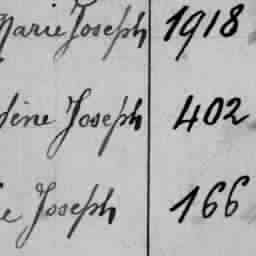 Marie Joseph 1918
Joseph 402
Joseph 166